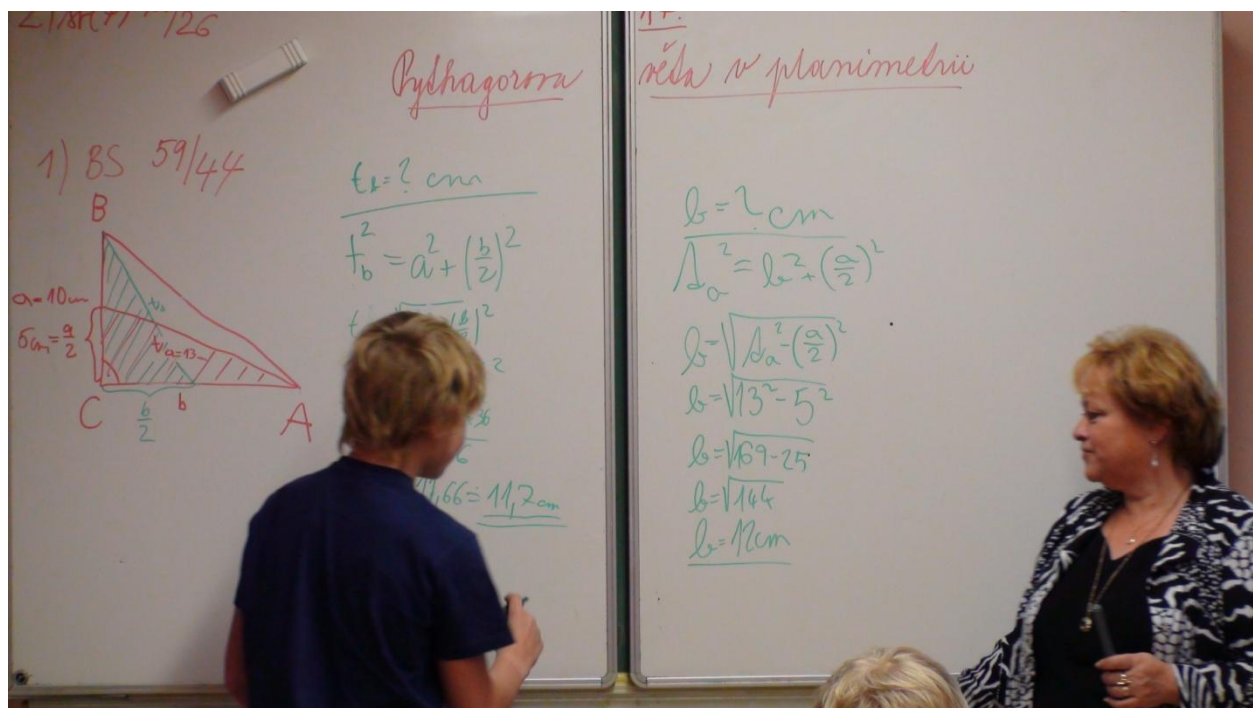 Pythagorova věta v planimetrii
1) BS 59/44
B
a=10cm
5cm=a/2
t_b
t_a=13
C
b/2
b
A
t_b=? cm
t_b^2=a^2+(b/2)^2
11,66=11,7cm
b=? cm
t_a^2=b^2+(a/2)^2
b=√t_a^2-(a/2)^2
b=√13^2-5^2
b=√169-25
b=√144
b=12cm